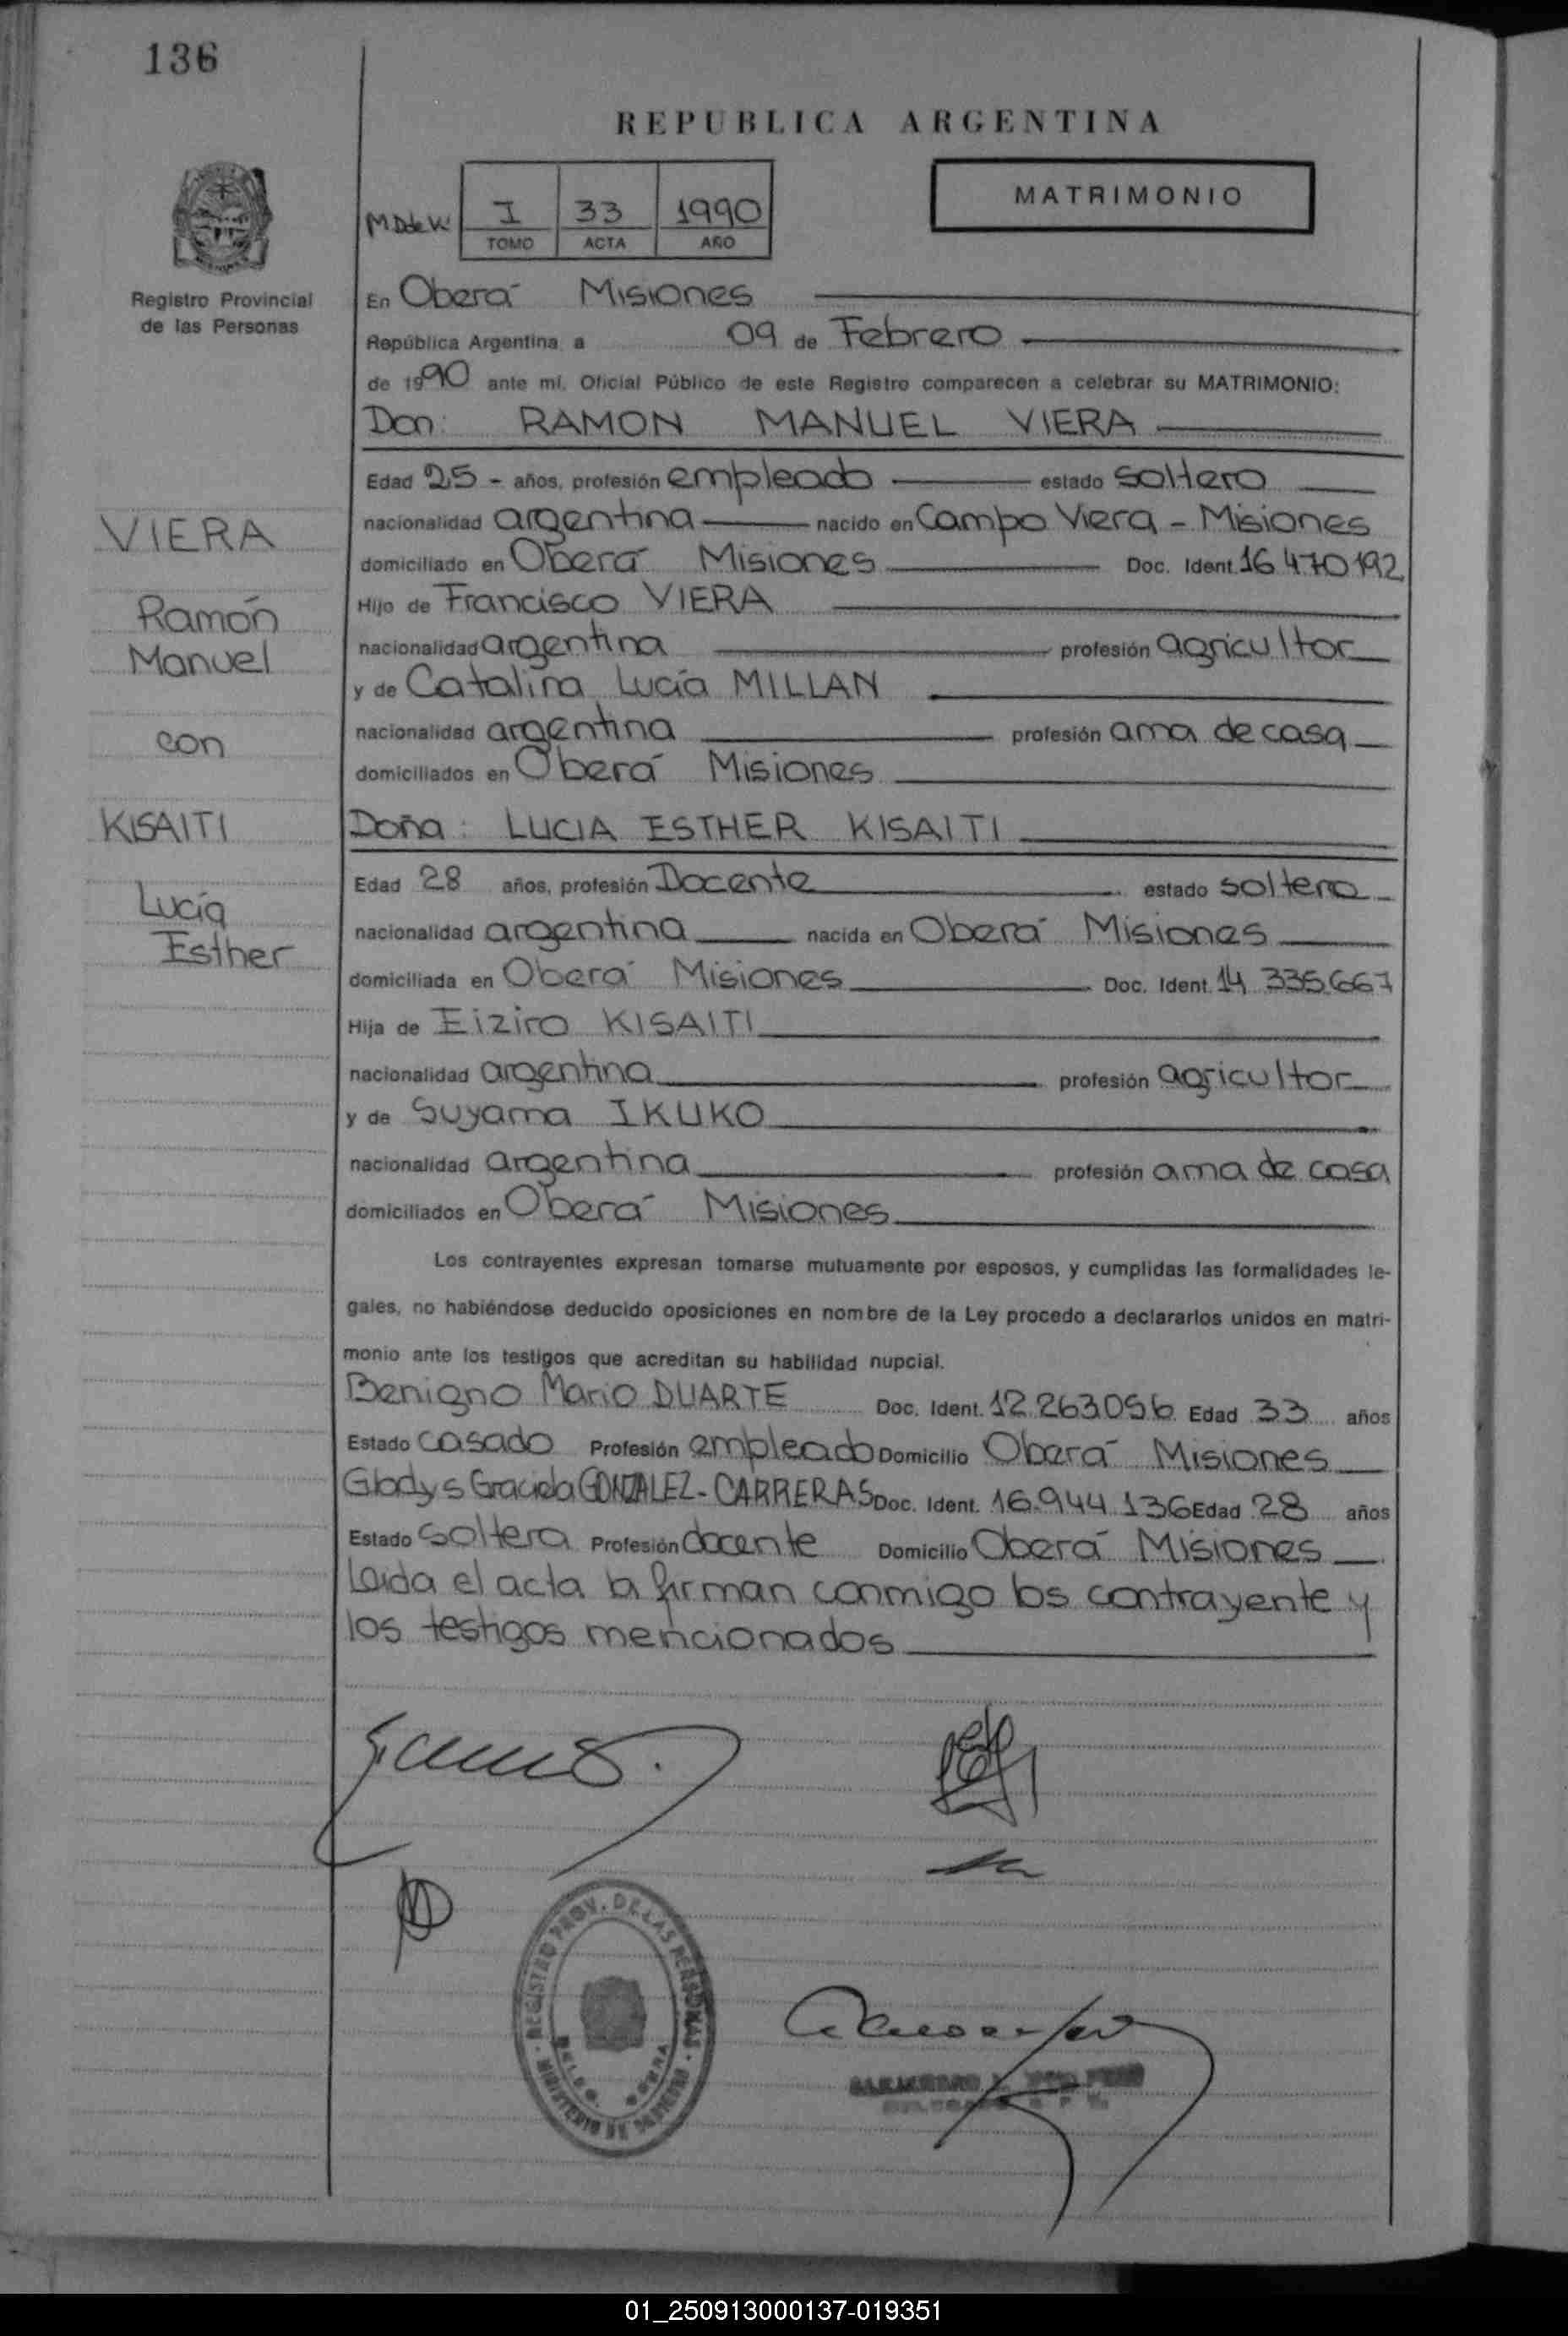 136
REPUBLICA ARGENTINA
MATRIMONIO
I 33 1990
TOMO ACTA AÑO
Registro Provincial
de las Personas
En Oberá Misiones
República Argentina a 09 de Febrero
de 1990 ante mí, Oficial Público de este Registro comparecen a celebrar su MATRIMONIO:
Don: RAMON MANUEL VIERA
Edad 25 - años, profesión empleado estado soltero
nacionalidad argentina nacido en Campo Viera - Misiones
domiciliado en Oberá Misiones Doc. Ident. 16 470192
Hijo de Francisco VIERA
nacionalidad argentina profesión agricultor
y de Catalina Lucía MILLAN
nacionalidad argentina profesión ama de casa
domiciliados en Oberá Misiones
VIERA
Ramón
Manuel
con
KISAITI
Lucía
Esther
Doña: LUCIA ESTHER KISAITI
Edad 28 años, profesión Docente estado soltera
nacionalidad argentina nacida en Oberá Misiones
domiciliada en Oberá Misiones Doc. Ident. 14 335.667
Hija de Eiziro KISAITI
nacionalidad argentina profesión agricultor
y de Suyama IKUKO
nacionalidad argentina profesión ama de casa
domiciliados en Oberá Misiones
Los contrayentes expresan tomarse mutuamente por esposos, y cumplidas las formalidades le-
gales, no habiéndose deducido oposiciones en nombre de la Ley procedo a declararlos unidos en matri-
monio ante los testigos que acreditan su habilidad nupcial.
Benigno Mario DUARTE Doc. Ident. 12.263.056 Edad 33 años
Estado casado Profesión empleado Domicilio Oberá Misiones
Gladys Graciela GONZALEZ-CARRERAS Doc. Ident. 16.944.136 Edad 28 años
Estado soltera Profesión docente Domicilio Oberá Misiones
Leida el acta la firman conmigo los contrayente y
los testigos mencionados
REGISTRO PROV. DE LAS PERSONAS
MINISTERIO DE GOBIERNO
01_250913000137-019351